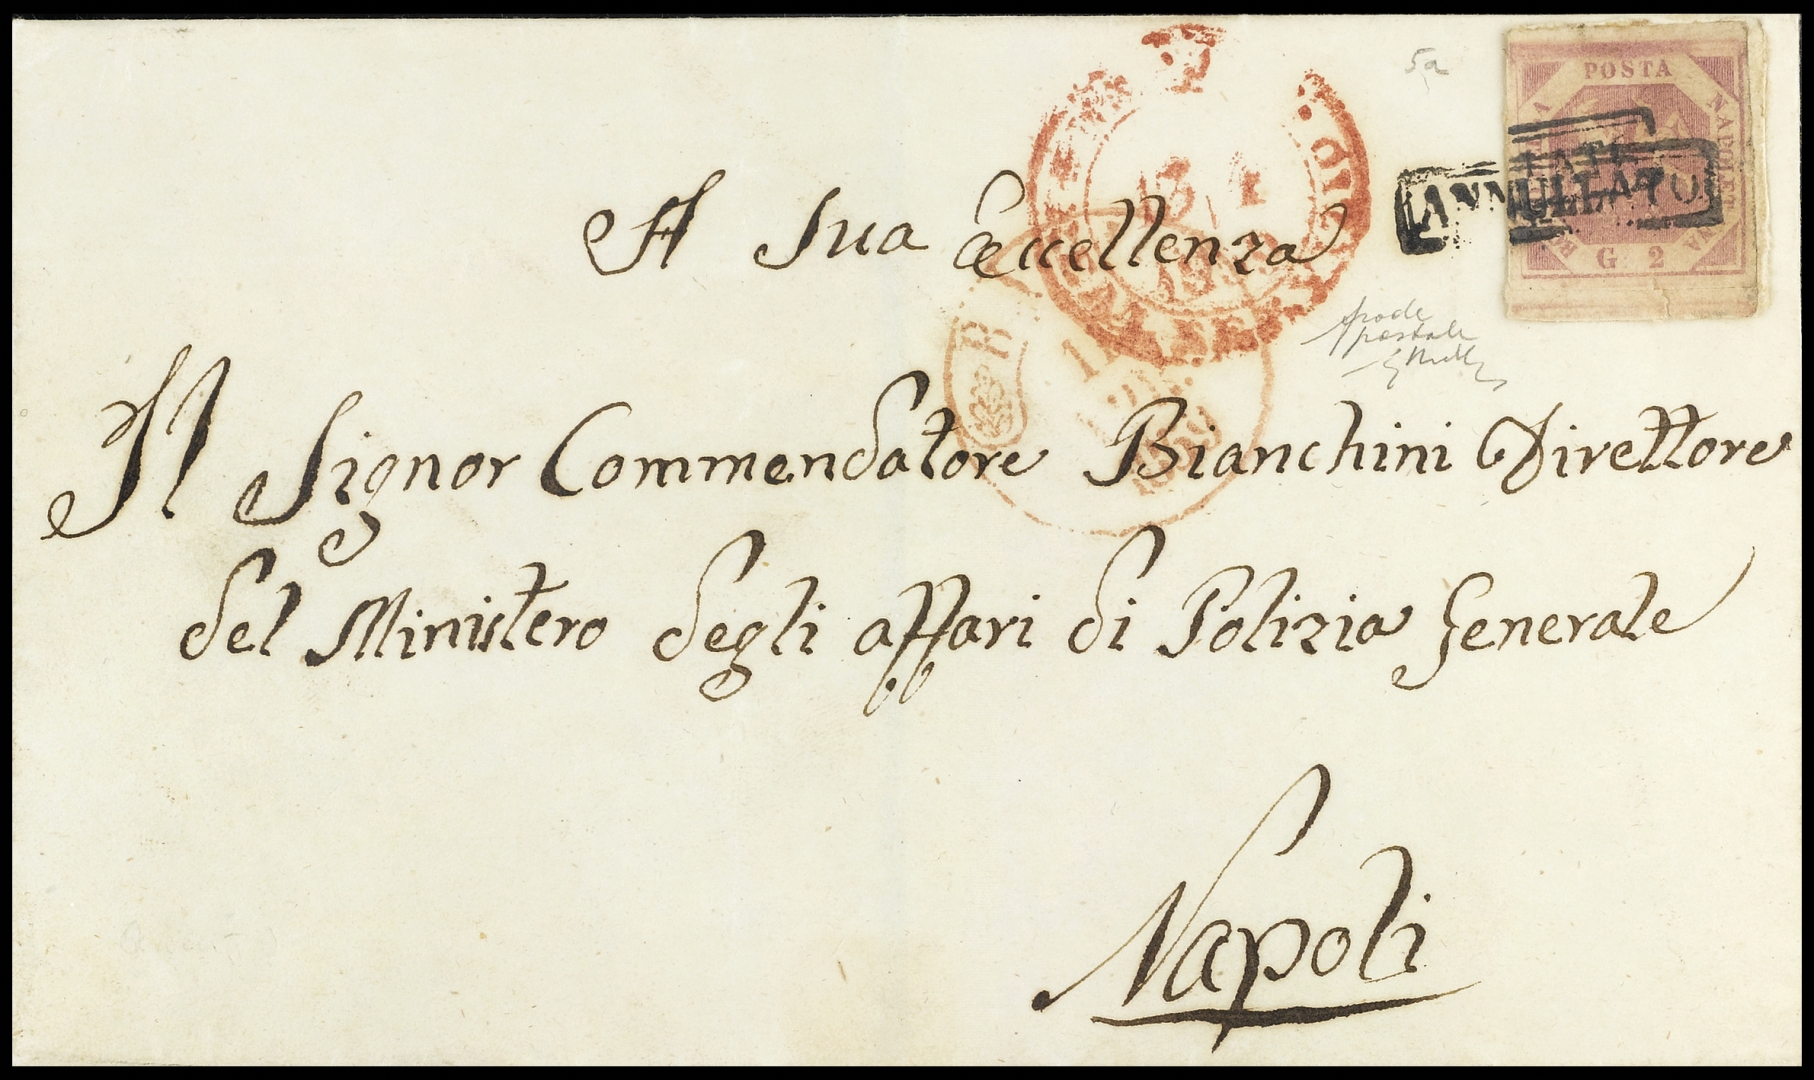 5a
POSTA NAPOLETANA
G. 2
ANNULLATO
A Sua Eccellenza
frode
postale
Il Signor Commendatore Bianchini Direttore
del Ministero degli affari di Polizia Generale
Napoli